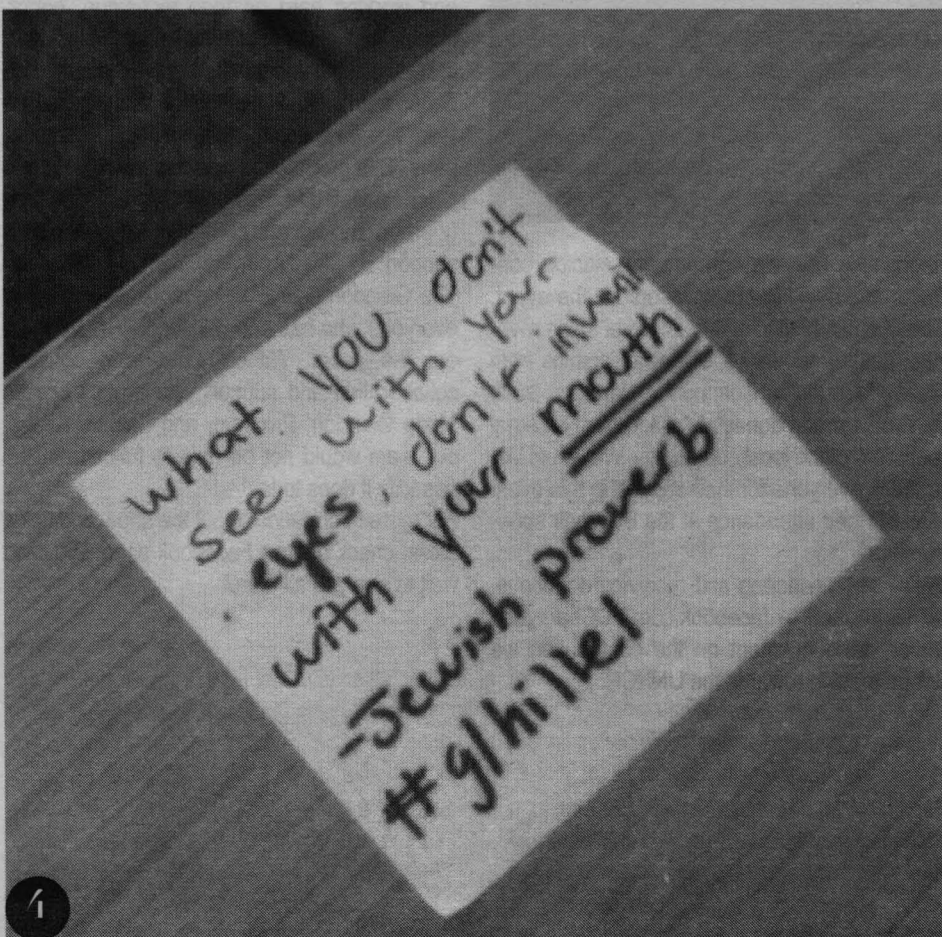 what you don't
see with your
eyes, don't invent
with your mouth
-Jewish proverb
#g/hillel
4